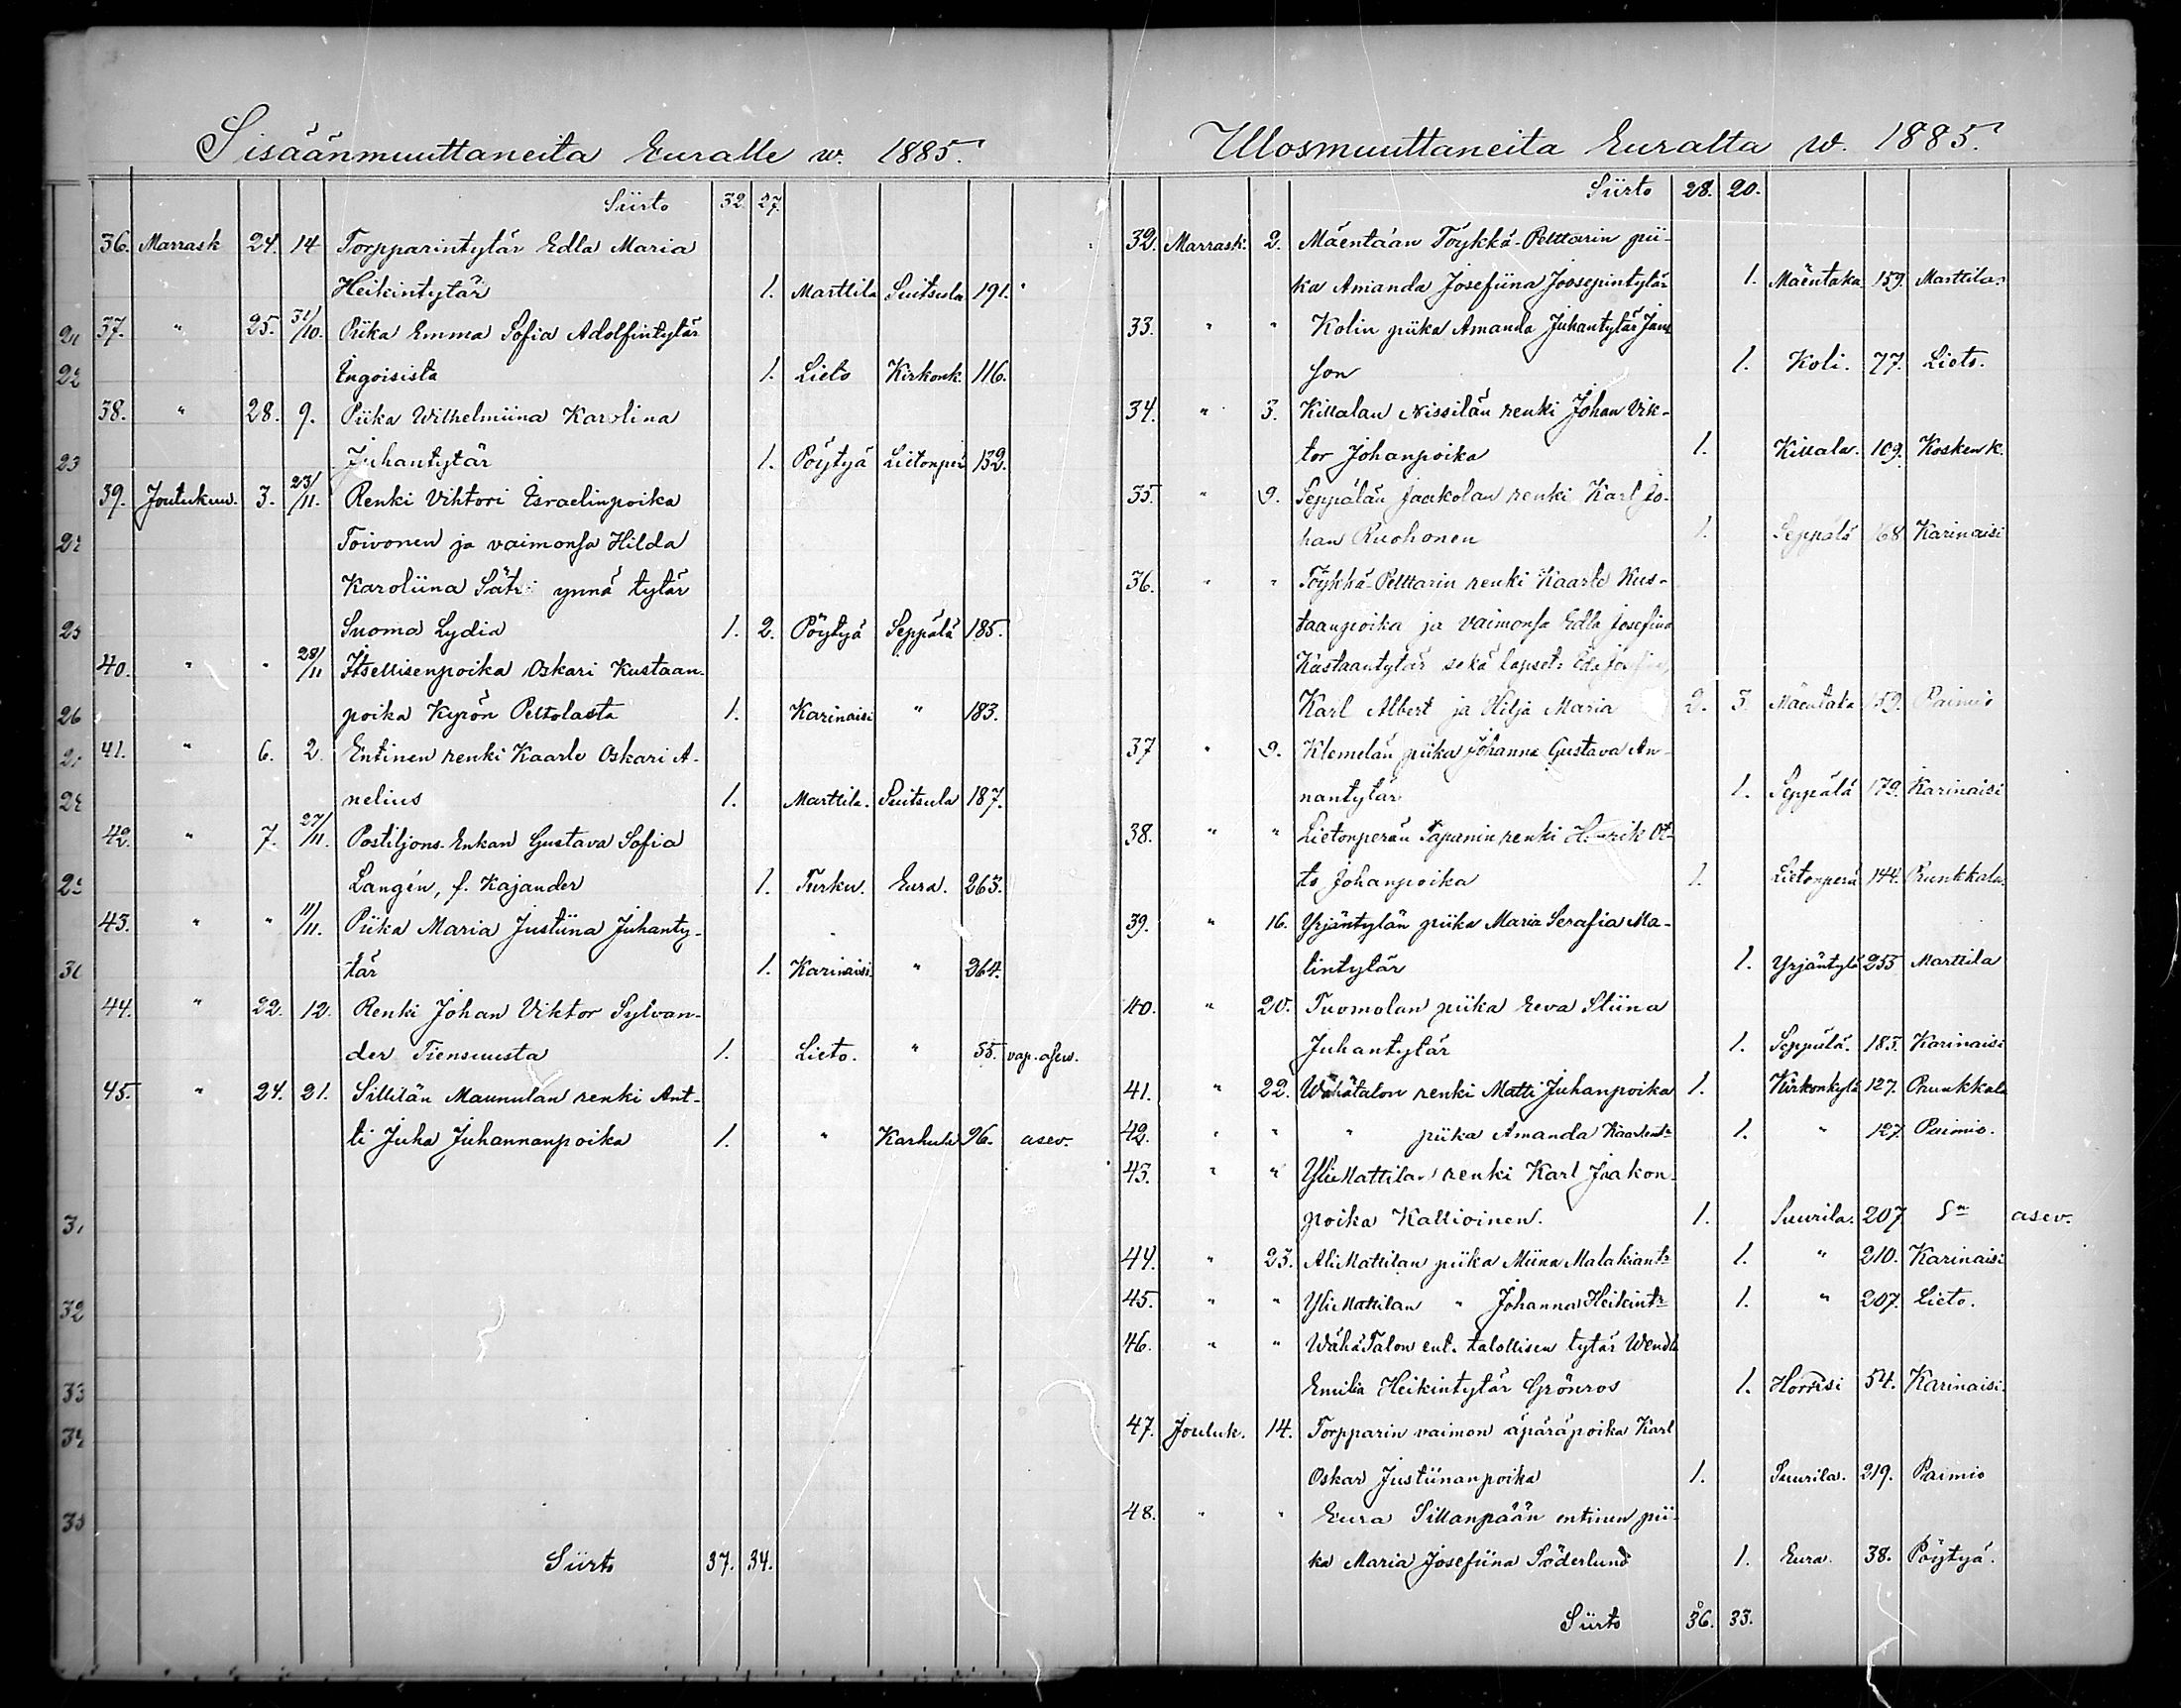 Sisäänmuuttaneita Euralle w. 1885.
Siirto 32. 27.
36. Marrask 24. 14 Torpparintytär Edla Maria
Heikintytär 1. Marttila Suitsula 191.
37. " 25. 31/10. Piika Emma Sofia Adolfintytär
Ingoisista 1. Lieto Kirkonk. 116.
38. " 28. 9. Piika Wilhelmiina Karolina
Juhantytär 1. Pöytyä Lietonper 132.
39. Joulukuu. 3. 23/11. Renki Vihtori Israelinpoika
Toivonen ja vaimonsa Hilda
Karoliina ynnä tytär
Suoma Lydia 1. 2. Pöytyä Seppälä 185.
40. " " 28/11 Itsellisenpoika Oskari Kustaan-
poika Kyrön Peltolasta 1. Karinaisi " 183.
41. " 6. 2. Entinen renki Kaarlo Oskari A-
nelius 1. Marttila. Suitsula 187.
42. " 7. 27/11. Postiljons-Enkan Gustava Sofia
Langén, f. Kajander 1. Turku. Eura. 263.
43. " " 11/11. Piika Maria Justiina Juhanty-
tär 1. Karinaisi " 264.
44. " 22. 12. Renki Johan Viktor Sylvan-
der Tiensuusta 1. Lieto. " 55. vap. asev.
45. " 24. 21. Sillilän Maunulan renki Ant-
ti Juha Juhannanpoika 1. " Karhula 96. asev.
Siirto 37. 34.
Ulosmuuttaneita Euralta w. 1885.
Siirto 28. 20.
32. Marrask. 2. Mäentaan Töykkä-Pelttarin pii-
ka Amanda Josefiina Joosepintytär 1. Mäentaka 159. Marttila.
33. " " Kolin piika Amanda Juhantytär Jan
son 1. Koli. 77. Lieto.
34. " 3. Killalan Nissilän renki Johan Vik-
tor Johanpoika 1. Killala. 109. Kosken k.
35. " 9. Seppälän Jaakolan renki Karl Jo-
han Ruohonen 1. Seppälä 168 Karinaisi
36. " " Töykkä-Pelttarin renki Kaarlo Kus-
taanpoika ja vaimonsa Edla Josefina
Kustaantytär sekä lapset:
Karl Albert ja Hilja Maria 2. 3. Mäentaka 159. Paimio
37 " 9. Klemelän piika Johanna Gustava An-
nantytär 1. Seppälä 179. Karinaisi
38. " " Lietonperän Tapanin renki Henrik Ot-
to Johanpoika 1. Lietonperä 144. Prunkkala.
39. " 16. Yrjäntylän piika Maria Serafia Ma-
tintytär 1. Yrjäntylä 255 Marttila
40. " 20. Tuomolan piika Eeva Stiina
Juhantytär 1. Seppälä. 183. Karinaisi
41. " 22. Wähätalon renki Matti Juhanpoika 1. Kirkonkylä 127. Prunkkala
42. " " " piika Amanda Kaarlentr 1. " 127. Paimio.
43. " " YliMattilan renki Karl Jaakon-
poika Kallioinen. 1. Suurila. 207 Sn asev.
44. " 23. AliMattilan piika Miina Malakiantr 1. " 210. Karinaisi
45. " " YliMattilan " Johanna Heikintr 1. " 207. Lieto.
46. " " WähäTalon ent. talollisen tytär Wendla
Emilia Heikintytär Grönros 1. Horrisi 54. Karinaisi.
47. Jouluk. 14. Torpparin vaimon äpäräpoika Karl
Oskar Justiinanpoika 1. Suurila. 219. Paimio
48. " " Eura Sillanpään entinen pii-
ka Maria Josefiina Söderlund 1. Eura. 38. Pöytyä.
Siirto 36. 33.